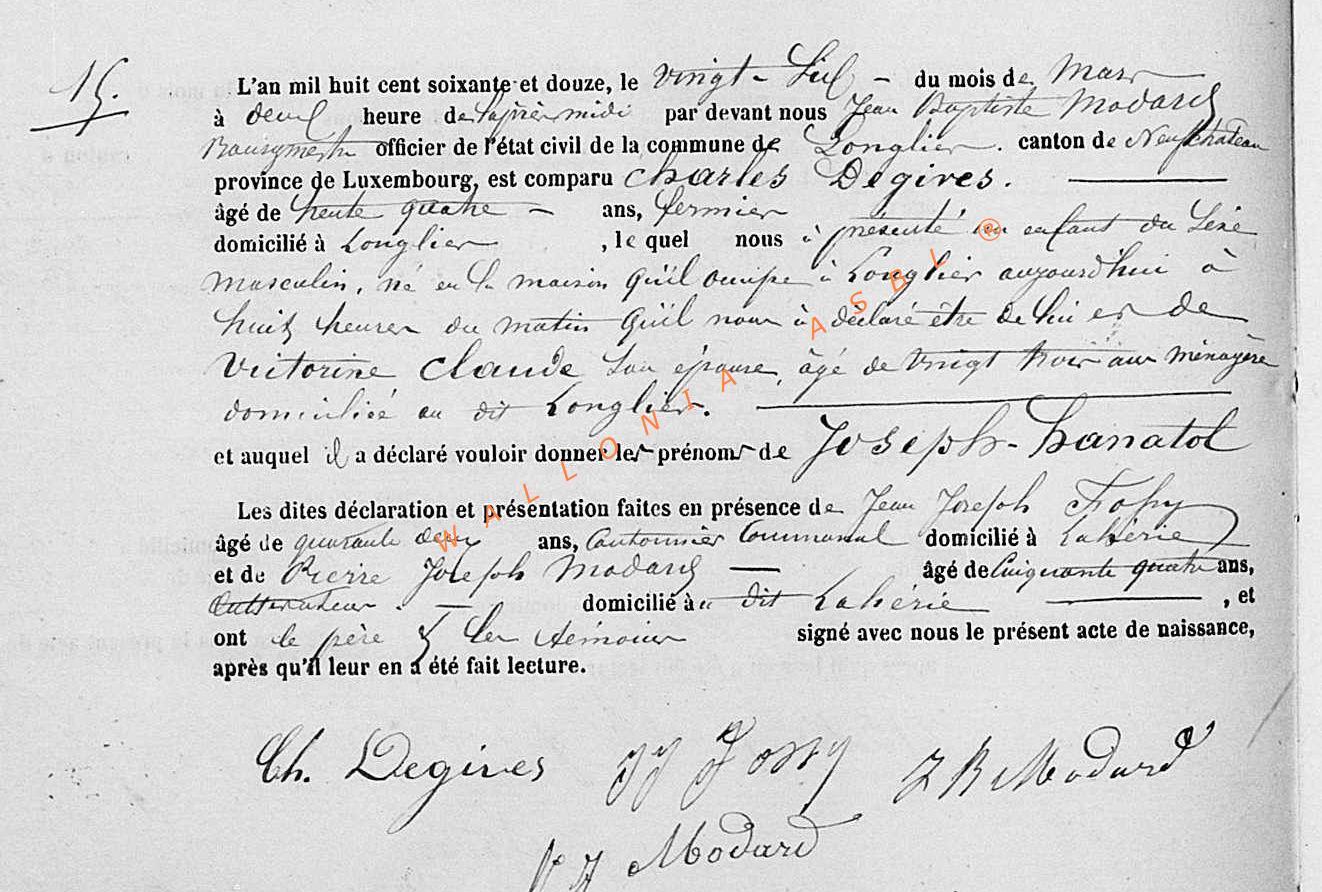 15.
L'an mil huit cent soixante et douze, le vingt-six du mois de Mars
à deux heure de l'après midi par devant nous Jean Baptiste Modard
Bourgmestre officier de l'état civil de la commune de Longlier. canton de Neufchateau
province de Luxembourg, est comparu Charles Degives.
âgé de trente quatre ans, fermier
domicilié à Longlier, lequel nous à présenté un enfant du sexe
masculin, né en la maison qu'il occupe à Longlier aujourd'hui à
huit heures du matin qu'il nous à déclaré être de lui et de
Victorine Claude son épouse, âgé de vingt trois ans ménagère
domiciliée au dit Longlier.
et auquel il a déclaré vouloir donner les prénoms de Joseph-hanatol
Les dites déclaration et présentation faites en présence de Jean Joseph
âgé de quarante deux ans, Cantonnier Communal domicilié à Lahérie
et de Pierre Joseph Modard âgé de Cinquante quatre ans,
Cultivateur. domicilié à u dit Lahérie, et
ont le père & les témoins signé avec nous le présent acte de naissance,
après qu'il leur en a été fait lecture.
Ch. Degives JJ J B Modard
P J Modard
WALLONIA ASBL ®